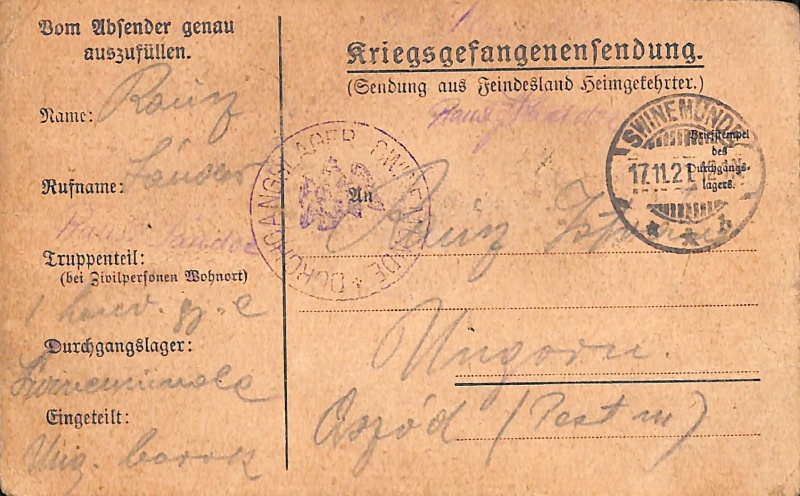 Vom Absender genau
auszufüllen.
Name: Rainz
Sándor
Rufname:
Truppenteil:
(bei Zivilpersonen Wohnort)
1 honv. gy. e
Durchgangslager:
Swinemünde
Eingeteilt:
Ung. barak
Kriegsgefangenensendung.
(Sendung aus Feindesland Heimgekehrter.)
DURCHGANGSLAGER SWINEMÜNDE
SWINEMÜNDE
17.11.21
Briefstempel
des
Durchgangs-
lagers.
An
Rainz
Ungarn
Aszód (Pest m)